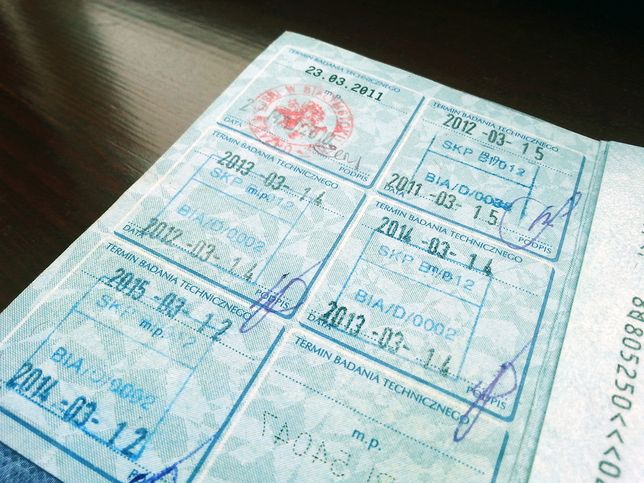 TERMIN BADANIA TECHNICZNEGO
23.03.2011
m.p.
DATA
PODPIS
TERMIN BADANIA TECHNICZNEGO
2012 -03- 15
SKP
BIA/D/
2011 -03- 15
PODPIS
TERMIN BADANIA TECHNICZNEGO
2013 -03- 14
SKP m.p.
BIA/D/0002
2012 -03- 14
DATA
PODPIS
TERMIN BADANIA TECHNICZNEGO
2014 -03- 14
SKP
BIA/D/0002
2013 -03- 14
DATA
PODPIS
TERMIN BADANIA TECHNICZNEGO
2015 -03- 12
SKP m.p.
BIA/D/0002
2014 -03- 12
PODPIS
TERMIN BADANIA TECHNICZNEGO
m.p.